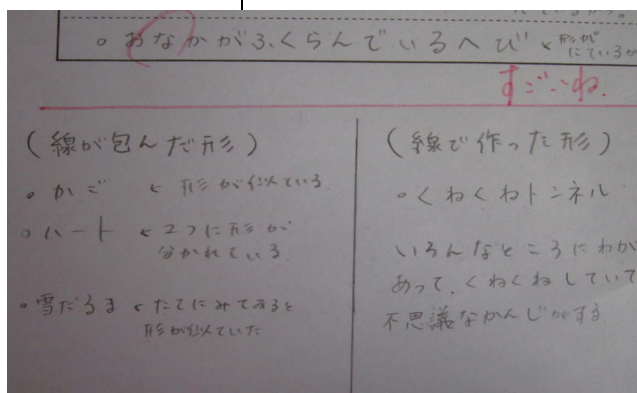 。おなかがふくらんでいるへび ← 形が
にているか
すごいね.
(線が包んだ形)
。かご ← 形が似ている
。ハート ← 2つに形が
分かれている.
。雪だるま ← たてにみてみると
形が似ていた
(線で作った形)
。くねくねトンネル
いろんなところにわが
あって、くねくねしていて
不思議なかんじがする.